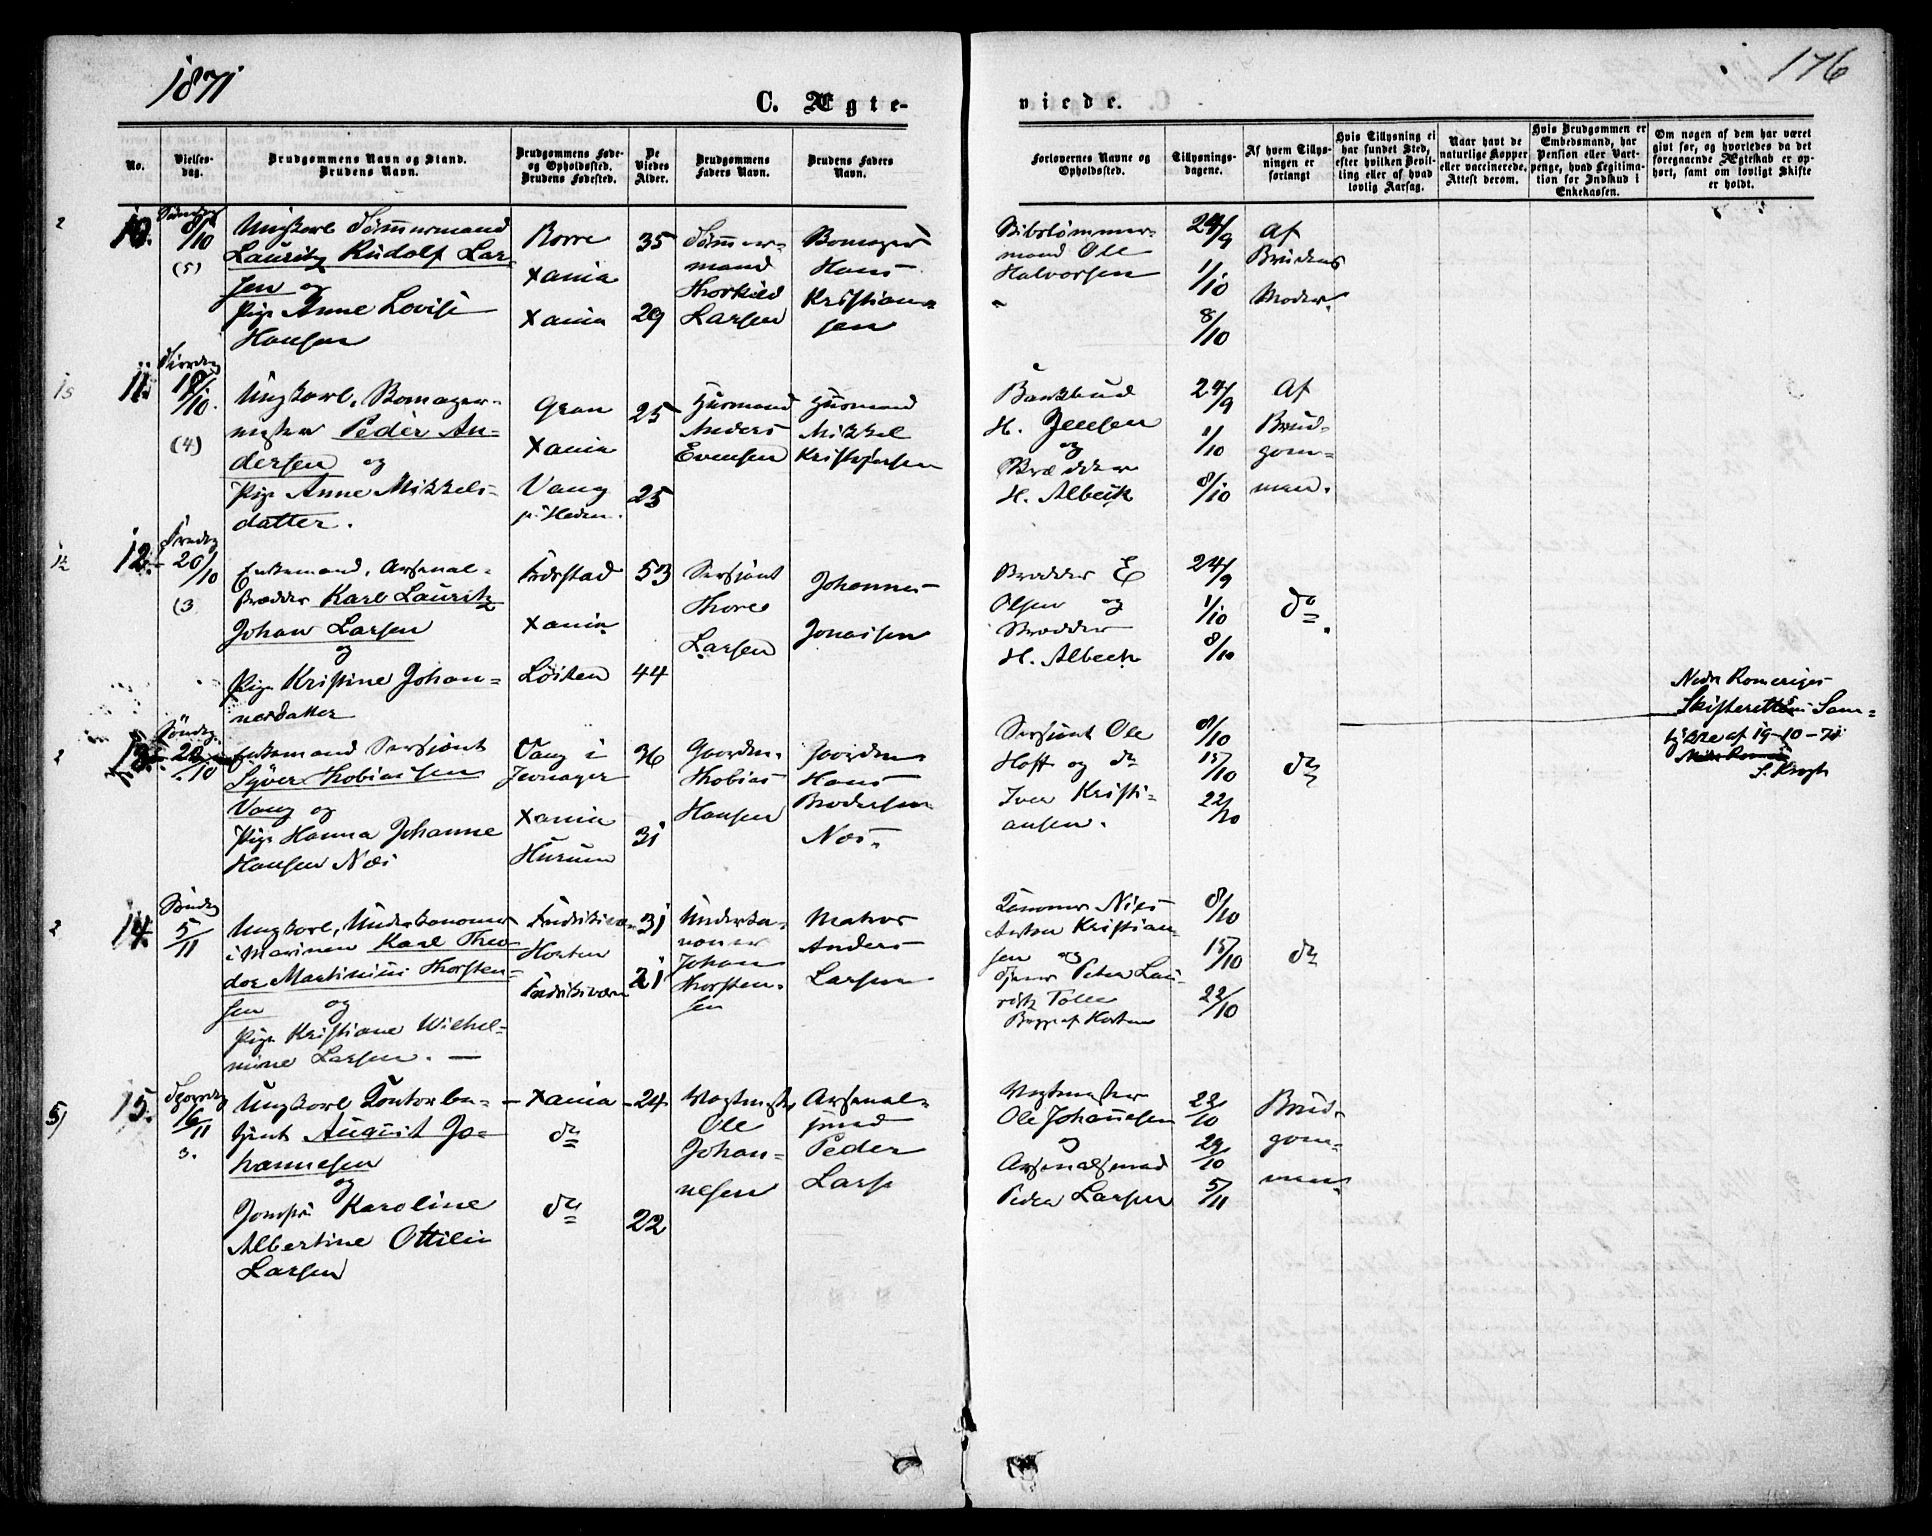 1871
176
C. Ægte-
viede.
No.
Vielses-
dag.
Brudgommens Navn og Stand.
Brudens Navn.
Brudgommens Føde-
og Opholdssted.
Brudens Fødested.
De
Viedes
Alder.
Brudgommens
Faders Navn.
Brudens Faders
Navn.
Forlovernes Navne og
Opholdssted.
Tillysnings-
dagene.
Af hvem Tillys-
ningen er
forlangt
Hvis Tillysning ei
har fundet Sted,
efter hvilken Bevil-
ling eller af hvad
lovlig Aarsag.
Naar havt de
naturlige Kopper
eller vaccinerede.
Attest derom.
Hvis Brudgommen er
Embedsmand, har
Pension eller Vart-
penge, hvad Legitima-
tion for Indskud i
Enkekassen.
Om nogen af dem har været
givt før, og hvorledes da det
foregaaende Ægteskab er op-
hørt, samt om lovligt Skifte
er holdt.
2
10.
Søndag
8/10
(5)
Ungkarl Tømmermand
Lauritz Rudolf Lar-
sen og
Pige Anne Lovise
Hansen
Borre
Xania
Xania
35
29
Tømmer-
mand
Thorkild
Larsen
Bomager
Hans
Kristian-
sen
Skibstømmer-
mand Ole
Halvorsen
24/9
1/10
8/10
Af
Brudens
Moder.
11.
/10.
(4)
Ungkarl, Bomager-
mester Peder An-
dersen og
Pige Anne Mikkels-
datter.
Gran
Xania
Vang
p. Heden.
25
25
Husmand
Anders
Evensen
Husmand
Mikkel
Kristofersen
Bankbud
H. Jensen
og
H. Albeck
24/9
1/10
8/10
Af
Brud-
gom-
men.
12.
20/10
(3
Enkemand, Arsenal-
snedker Karl Lauritz
Johan Larsen
og
Pige Kristine Johan-
nesdatter
Fredrstad
Xania
Løiten
53
44
Sersjant
Thore
Larsen
Johannes
Jonassen
Snedker E
Olsen og
Snedker
H. Albeck
24/9
1/10
8/10
do
2
13.
Søndag
22/10
Enkemand Sersjant
Syver Thobiassen
Vang og
Pige Hanna Johanne
Hansen Næs
Vang i
Jevnager
Xania
Hurum
36
31
Gaardm.
Thobias
Hansen
Gaardm
Hans
Brodersen
Næs.
Sersjant Ole
Hoff og do
Iver Kristi-
ansen.
8/10
15/10
22/10
do
Nedre Romeriges
Skifterets Sam-
tykke af 19-10-71
S. Krogh
2
14.
Søndag
5/11
Ungkarl, Underkanoner
i Marinen Karl Theo-
dor Martinius Thorsten-
sen og
Pige Kristiane Wilhel-
mine Larsen.
Fredriksværn
Horten
Fredriksværn
31
21
Underka-
noner
Johan
Thorsten-
sen
Matros
Anders
Larsen
Kanoner Nils
Anton Kristian-
sen og
Peter Lau-
ritz Tolle
Begge af Horten
8/10
15/10
22/10
do
5)
15.
16/11
3.
Ungkarl Kontorbe-
tjent August Jo-
hannesen
og
Jomfru Karoline
Albertine Ottilie
Larsen
Xania
do
do
24
22
Vagtmester
Ole
Johan-
nesen
Arsenal-
Peder
Larsen
Vagtmester
Ole Johannesen
og
Arsenalsmand
Peder Larsen
22/10
29/10
5/11
Brud-
gom-
men